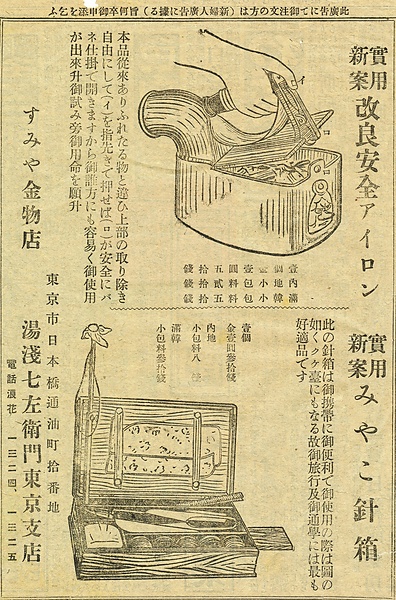 此廣告にて御注文の方は（新婦人廣告に據る）旨何卒御申添を乞ふ
實用
新案
改良安全アイロン
イ
ロ
ロ
本品從來ありふれたる物と違ひ上部の取り除き
自由にして（イ）を指先きで押せば（ロ）が安全にバ
ネ仕掛で開きますから御誰方にも容易く御使用
が出來升御試み旁御用命を願升
壹個 壹圓五拾錢
內地小包料貳拾錢
滿韓小包料五拾錢
實用
新案
みやこ針箱
此の針箱は御携帶に御便利で御使用の際は圖の
如くクケ臺にもなる故御旅行及御通學には最も
好適品です
壹個
金壹圓參拾錢
內地
小包料八錢
滿韓
小包料參拾錢
すみや金物店
東京市日本橋通油町拾番地
湯淺七左衛門東京支店
電話浪花 一三二四、一三二五